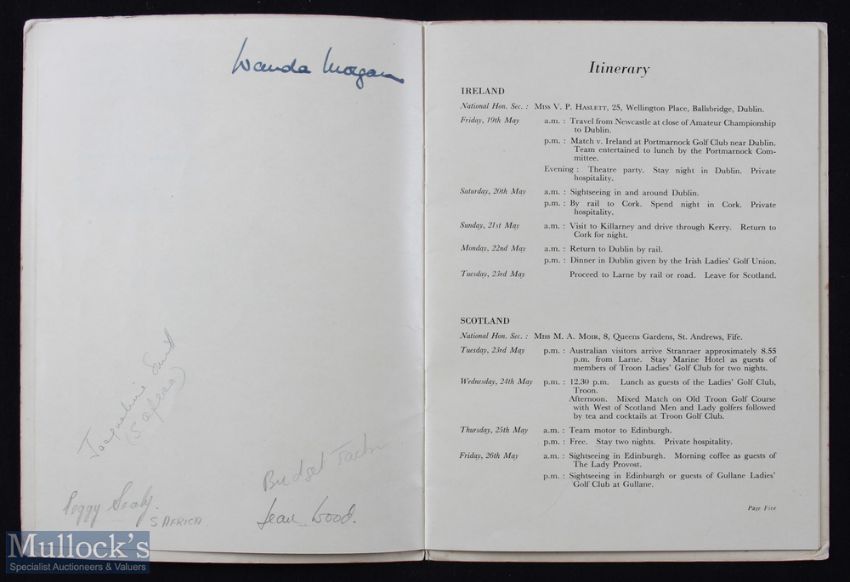 Wanda Morgan
Jacqueline Smit
(S Africa)
Bridget
Peggy
S AFRICA
Jean Wood.
Mullock's
Specialist Auctioneers & Valuers
Itinerary
IRELAND
National Hon. Sec. : MISS V. P. HASLETT, 25, Wellington Place, Ballsbridge, Dublin.
Friday, 19th May a.m. : Travel from Newcastle at close of Amateur Championship
to Dublin.
p.m. : Match v. Ireland at Portmarnock Golf Club near Dublin.
Team entertained to lunch by the Portmarnock Com-
mittee.
Evening : Theatre party. Stay night in Dublin. Private
hospitality.
Saturday, 20th May a.m. : Sightseeing in and around Dublin.
p.m. : By rail to Cork. Spend night in Cork. Private
hospitality.
Sunday, 21st May a.m. : Visit to Killarney and drive through Kerry. Return to
Cork for night.
Monday, 22nd May a.m. : Return to Dublin by rail.
p.m. : Dinner in Dublin given by the Irish Ladies' Golf Union.
Tuesday, 23rd May Proceed to Larne by rail or road. Leave for Scotland.
SCOTLAND
National Hon. Sec. : MISS M. A. MOIR, 8, Queens Gardens, St. Andrews, Fife.
Tuesday, 23rd May p.m. : Australian visitors arrive Stranraer approximately 8.55
p.m. from Larne. Stay Marine Hotel as guests of
members of Troon Ladies' Golf Club for two nights.
Wednesday, 24th May p.m. : 12.30 p.m. Lunch as guests of the Ladies' Golf Club,
Troon.
Afternoon. Mixed Match on Old Troon Golf Course
with West of Scotland Men and Lady golfers followed
by tea and cocktails at Troon Golf Club.
Thursday, 25th May a.m. : Team motor to Edinburgh.
p.m. : Free. Stay two nights. Private hospitality.
Friday, 26th May a.m. : Sightseeing in Edinburgh. Morning coffee as guests of
The Lady Provost.
p.m. : Sightseeing in Edinburgh or guests of Gullane Ladies'
Golf Club at Gullane.
Page Five